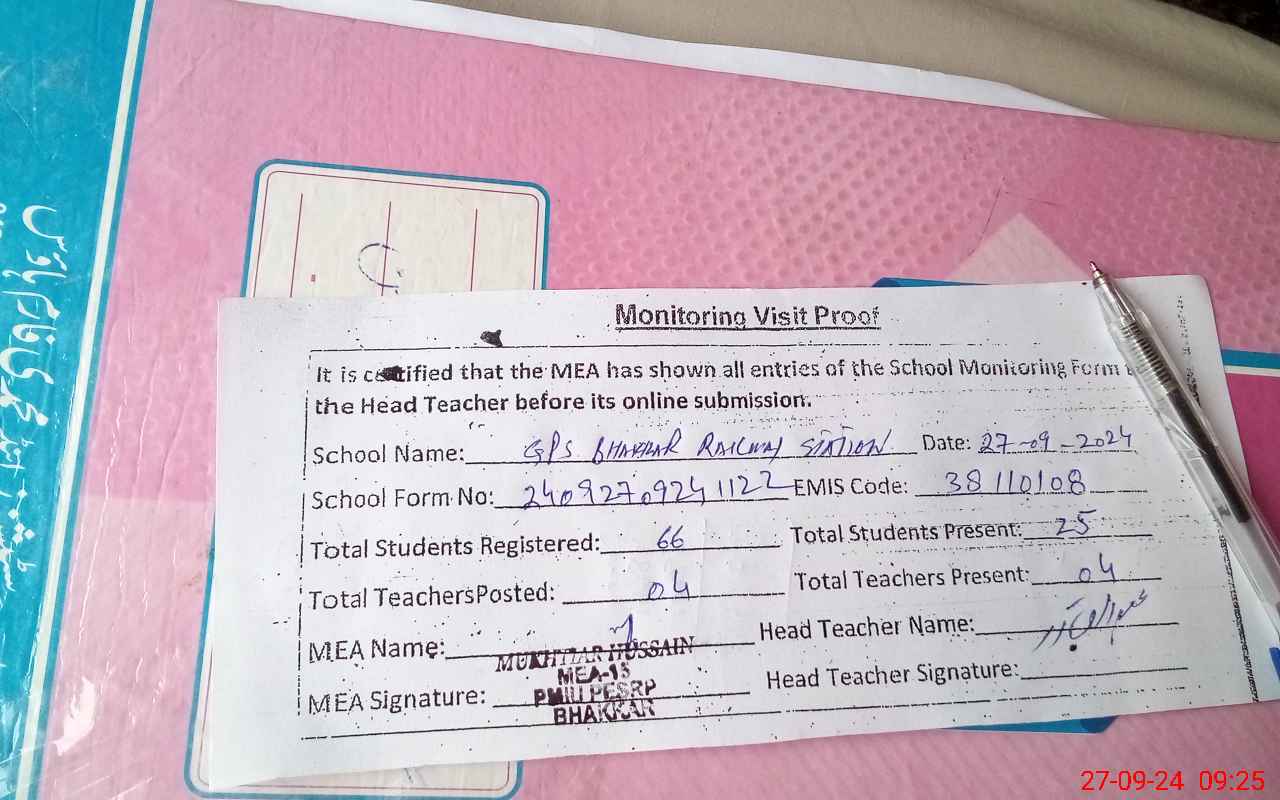 Monitoring Visit Proof
It is certified that the MEA has shown all entries of the School Monitoring Form
the Head Teacher before its online submission.
School Name: GPS BHAKKAR RAILWAY STATION Date: 27-09-2024
School Form No: 24092709241122 EMIS Code: 38110108
Total Students Registered: 66 Total Students Present: 25
Total TeachersPosted: 04 Total Teachers Present: 04
MEA Name: Head Teacher Name:
MUKHTIAR HUSSAIN
MEA-15
MEA Signature: Head Teacher Signature:
PMIU PESRP
BHAKKAR
27-09-24 09:25